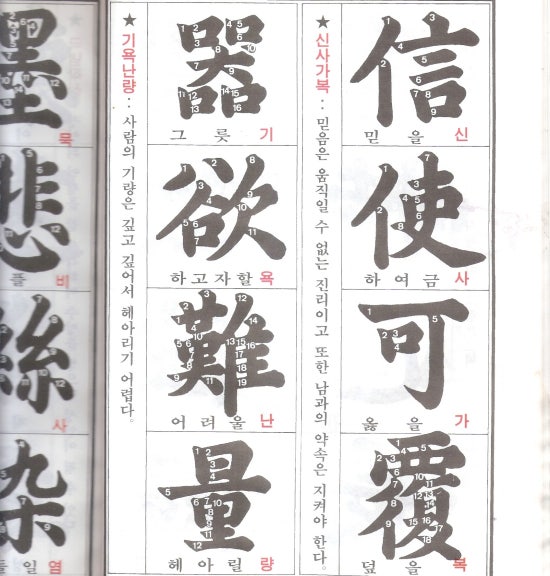 信
믿을 신
使
하여금 사
可
옳을 가
覆
덮을 복
★ 신사가복 : 믿음은 움직일 수 없는 진리이고 또한 남과의 약속은 지켜야 한다.
器
그릇 기
欲
하고자할 욕
難
어려울 난
量
헤아릴 량
★ 기욕난량 : 사람의 기량은 깊고 깊어서 헤아리기 어렵다.
墨
묵
悲
플 비
絲
사
染
들일 염